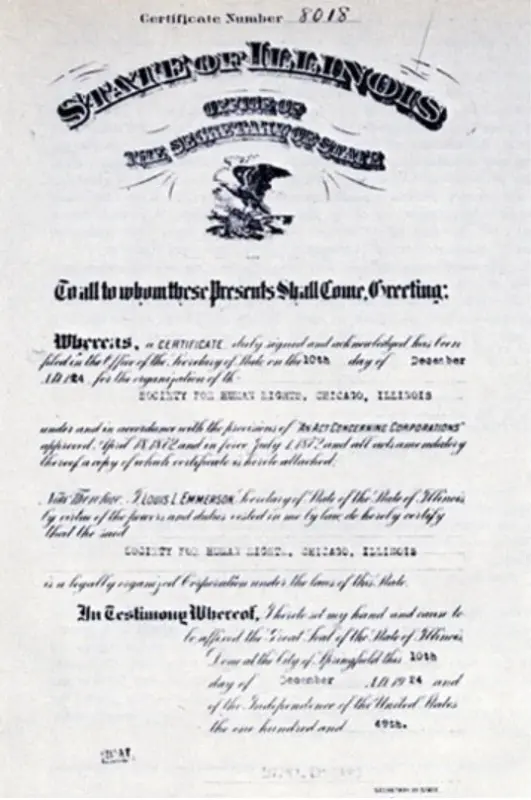 Certificate Number 8018
STATE OF ILLINOIS
OFFICE OF
THE SECRETARY OF STATE
To all to whom these Presents Shall Come, Greeting:
Whereas, a CERTIFICATE, duly signed and acknowledged has been
filed in the Office of the Secretary of State on the 10th day of December
A.D. 1924, for the organization of the
SOCIETY FOR HUMAN RIGHTS, CHICAGO, ILLINOIS
under and in accordance with the provisions of "AN ACT CONCERNING CORPORATIONS"
approved, April 18, 1872, and in force July 1, 1872, and all acts amendatory
thereof, a copy of which certificate is hereto attached;
Now Therefore, I, LOUIS L. EMMERSON, Secretary of State of the State of Illinois,
by virtue of the powers and duties vested in me by law, do hereby certify
that the said
SOCIETY FOR HUMAN RIGHTS, CHICAGO, ILLINOIS
is a legally organized Corporation under the laws of this State.
In Testimony Whereof, I hereto set my hand and cause to
be affixed the Great Seal of the State of Illinois,
Done at the City of Springfield this 10th
day of December A.D. 1924 and
of the Independence of the United States
the one hundred and 49th.
SEAL
SECRETARY OF STATE